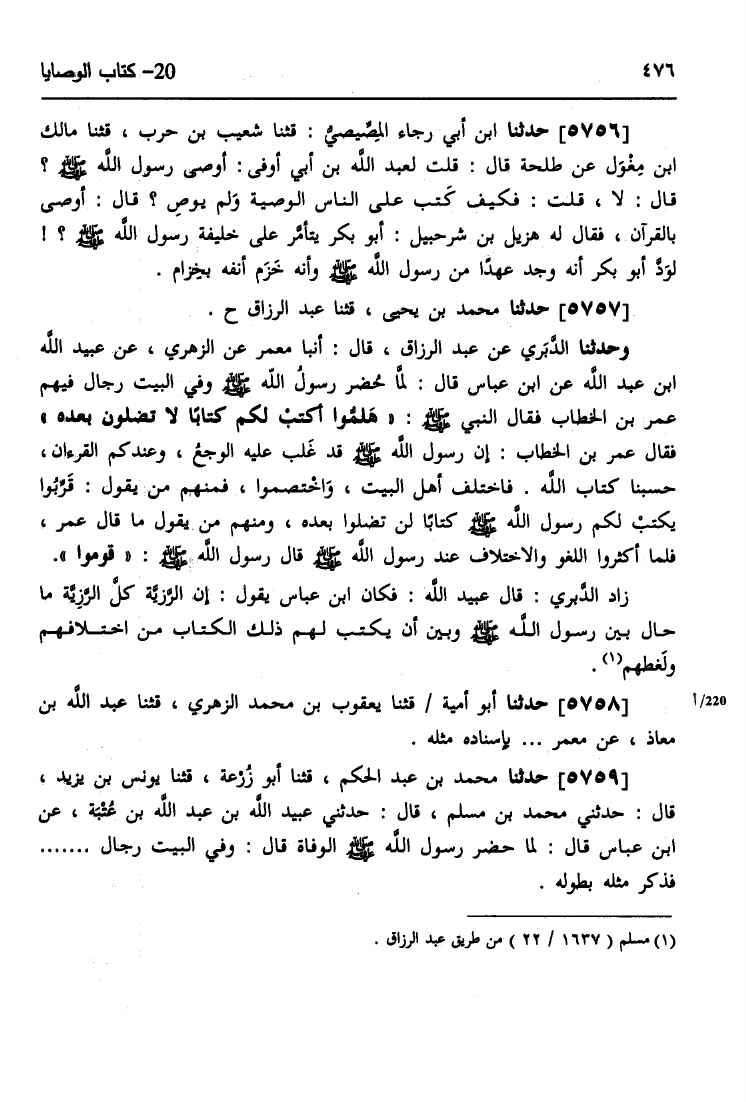 ٤٧٦ 20- كتاب الوصايا
[٥٧٥٦] حدثنا ابن أبي رجاء المِصِّيصيُّ : قثنا شعيب بن حرب ، قثنا مالك
ابن مِغْوَل عن طلحة قال : قلت لعبد الله بن أبي أوفى : أوصى رسول الله ﷺ ؟
قال : لا ، قلت : فكيف كَتب على الناس الوصية وَلم يوصِ ؟ قال : أوصى
بالقرآن ، فقال له هزيل بن شرحبيل : أبو بكر يتأمَّر على خليفة رسول الله ﷺ ؟ !
لوَدَّ أبو بكر أنه وجد عهدًا من رسول الله ﷺ وأنه خَزَم أنفه بخِزام .
[٥٧٥٧] حدثنا محمد بن يحيى ، قثنا عبد الرزاق ح .
وحدثنا الدَّبَري عن عبد الرزاق ، قال : أنبا معمر عن الزهري ، عن عبيد الله
ابن عبد الله عن ابن عباس قال : لمَّا حُضر رسولُ الله ﷺ وفي البيت رجال فيهم
عمر بن الخطاب فقال النبي ﷺ : « هَلمُّوا أكتبْ لكم كتابًا لا تضلون بعده »
فقال عمر بن الخطاب : إن رسول الله ﷺ قد غَلب عليه الوجعُ ، وعندكم القرءان،
حسبنا كتاب الله . فاختلف أهل البيت ، وَاخْتصموا ، فمنهم من يقول : قَرِّبُوا
يكتبْ لكم رسول الله ﷺ كتابًا لن تضلوا بعده ، ومنهم من يقول ما قال عمر ،
فلما أكثروا اللغو والاختلاف عند رسول الله ﷺ قال رسول الله ﷺ : « قوموا ».
زاد الدَّبري : قال عبيد الله : فكان ابن عباس يقول : إن الرَّزيَّة كلَّ الرَّزِيَّة ما
حال بين رسول الله ﷺ وبين أن يكتب لهم ذلك الكتاب من اختلافهم
ولَغطهم(١) .
[٥٧٥٨] حدثنا أبو أمية / قثنا يعقوب بن محمد الزهري ، قثنا عبد الله بن 220/أ
معاذ ، عن معمر ... بإسناده مثله .
[٥٧٥٩] حدثنا محمد بن عبد الحكم ، قثنا أبو زُرْعة ، قثنا يونس بن يزيد ،
قال : حدثني محمد بن مسلم ، قال : حدثني عبيد الله بن عبد الله بن عُتْبَة ، عن
ابن عباس قال : لما حضر رسول الله ﷺ الوفاة قال : وفي البيت رجال .......
فذكر مثله بطوله .
(١) مسلم ( ١٦٣٧ / ٢٢ ) من طريق عبد الرزاق .